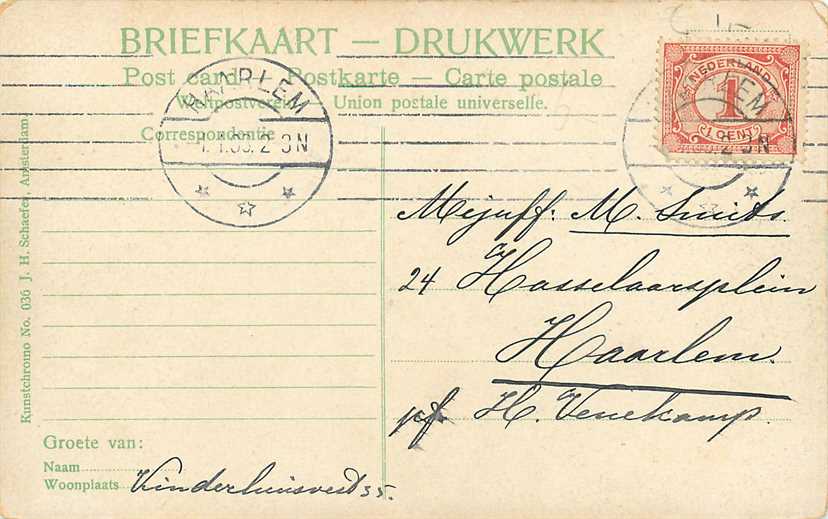 BRIEFKAART — DRUKWERK
Post card — Postkarte — Carte postale
Weltpostverein — Union postale universelle.
Correspondentie
HAARLEM
2 3 N
NEDERLAND
1
1 CENT
LEM
2 3 N
Mejuff: M. Smids
24 Hasselaarsplein
Haarlem.
pf H. Venekamp.
Groete van:
Naam
Woonplaats Kinderhuisvest 35.
Kunstchromo No. 036 J. H. Schaefer, Amsterdam.